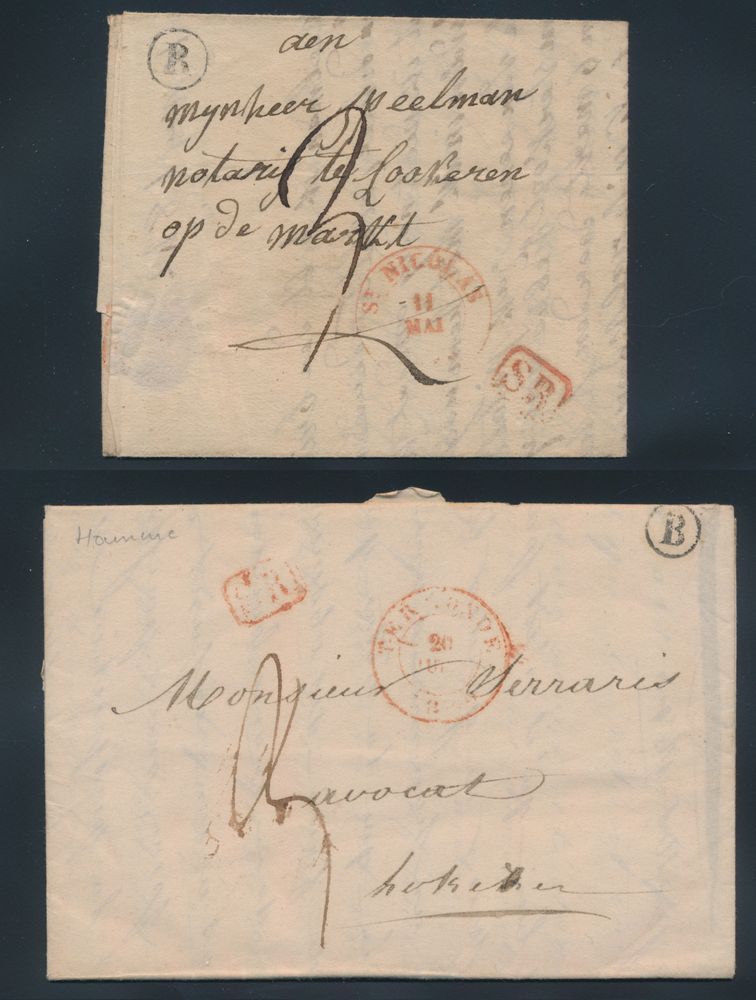 B
aen
mynheer Speelman
notaris te Lookeren
op de markt
3
ST NICOLAS
11
MAI
SR
Hamme
B
SR
TERMONDE
20
Monsieur Verraris
3
avocat
Lokeren